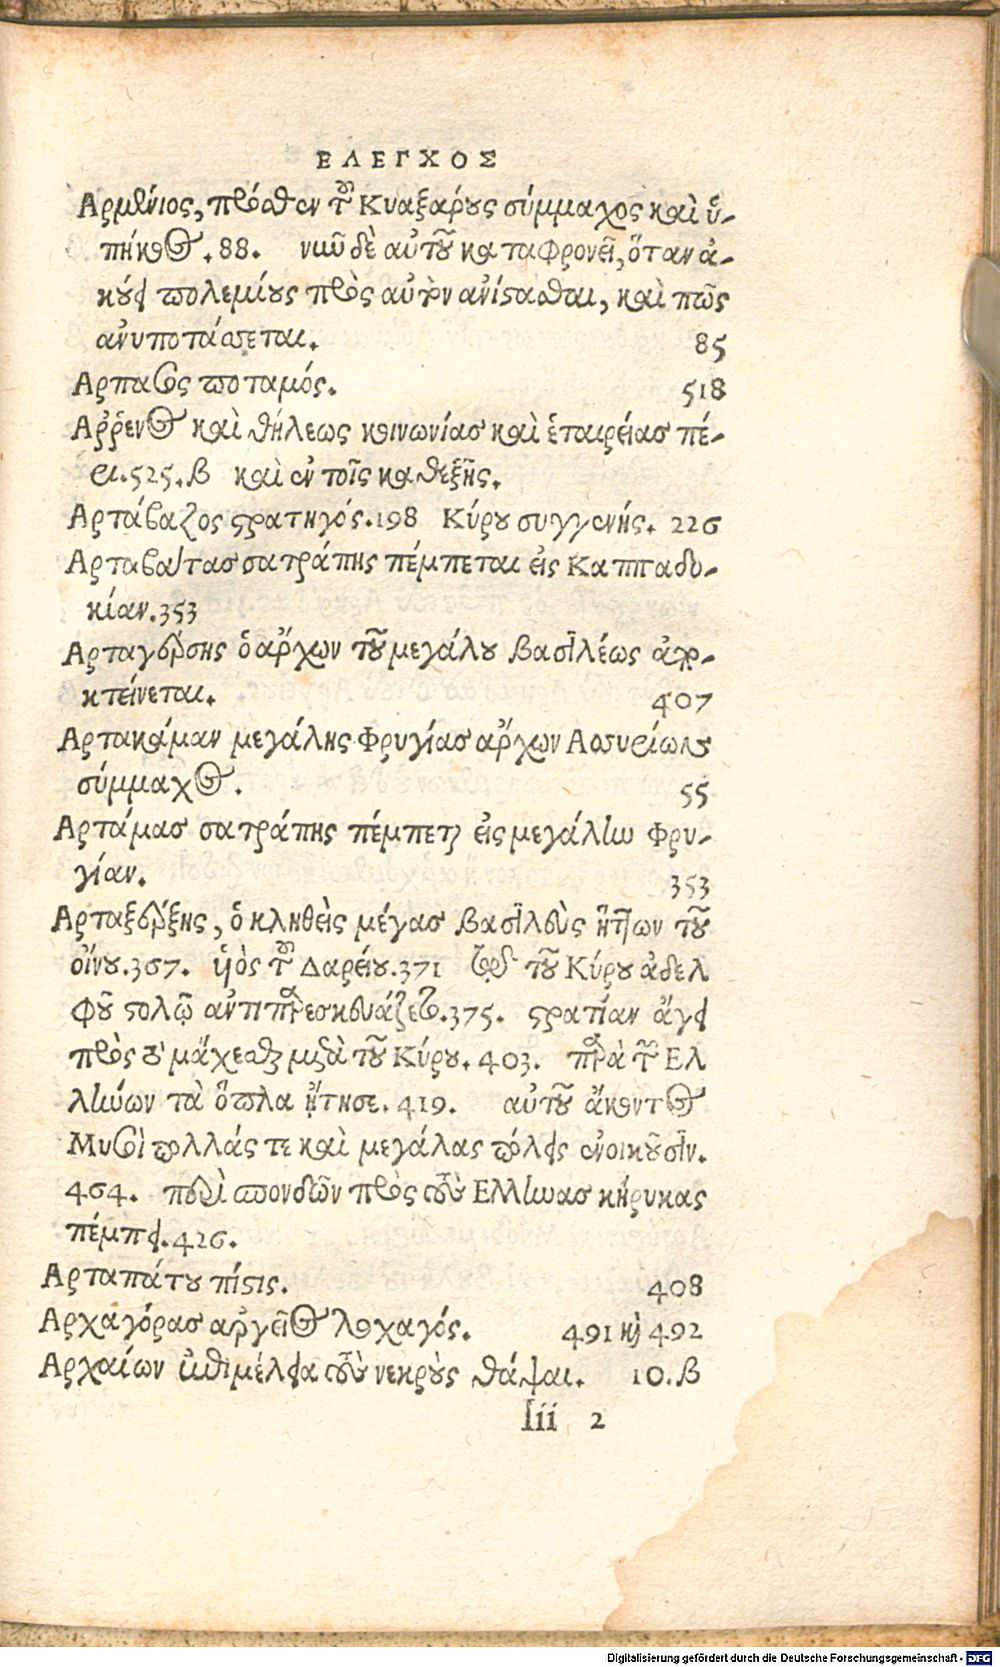 ΕΛΕΓΧΟΣ
Αρμένιος, πρόσθεν τοῦ Κυαξάρους σύμμαχος καὶ ὑ-
πήκοος. 88. νιῦ δὲ αὐτοῦ καταφρονεῖ, ὅταν ἀ-
κούῃ πολεμίους πρὸς αὐτὸν ἀνίστασθαι, καὶ πῶς
ἀνυποτάσσεται. 85
Αρπασος ποταμός. 518
Αῤῥενος καὶ θήλεως κοινωνίας καὶ ἑταιρείας πέ-
ρι. 525. β καὶ ἐν τοῖς καθεξῆς.
Αρτάβαζος στρατηγός. 198 Κύρου συγγενής. 226
Αρταβαίτας σατράπης πέμπεται εἰς Καππαδο-
κίαν. 353
Αρταγέρσης ὁ ἄρχων τοῦ μεγάλου βασιλέως ἀπο-
κτείνεται. 407
Αρτακάμαν μεγάλης Φρυγίας ἄρχων Ασσυρίων
σύμμαχος. 55
Αρτάμας σατράπης πέμπεται εἰς μεγάλην Φρυ-
γίαν. 353
Αρταξέρξης, ὁ κληθεὶς μέγας βασιλεὺς ἥττων τοῦ
οἴνου. 367. υἱὸς τοῦ Δαρείου. 371 τοῦ Κύρου ἀδελ
φοῦ στολῷ ἀντιπαρεσκευάζετο. 375. στρατιὰν ἄγει
πρὸς τὸ μάχεσθαι μετὰ τοῦ Κύρου. 403. παρὰ τῶν Ελ
λήνων τὰ ὅπλα ᾔτησε. 419. αὐτοῦ ἄκοντος
Μυσοὶ πολλάς τε καὶ μεγάλας πόλεις ἐνοικοῦσιν.
464. περὶ σπονδῶν πρὸς τοὺς Ελληνας κήρυκας
πέμπει. 426.
Αρταπάτου πίστις. 408
Αρχαγόρας ἀργεῖος λοχαγός. 491 καὶ 492
Αρχαίων ἐπιμέλεια τοὺς νεκροὺς θάψαι. 10. β
Iii 2
Digitalisierung gefördert durch die Deutsche Forschungsgemeinschaft - DFG